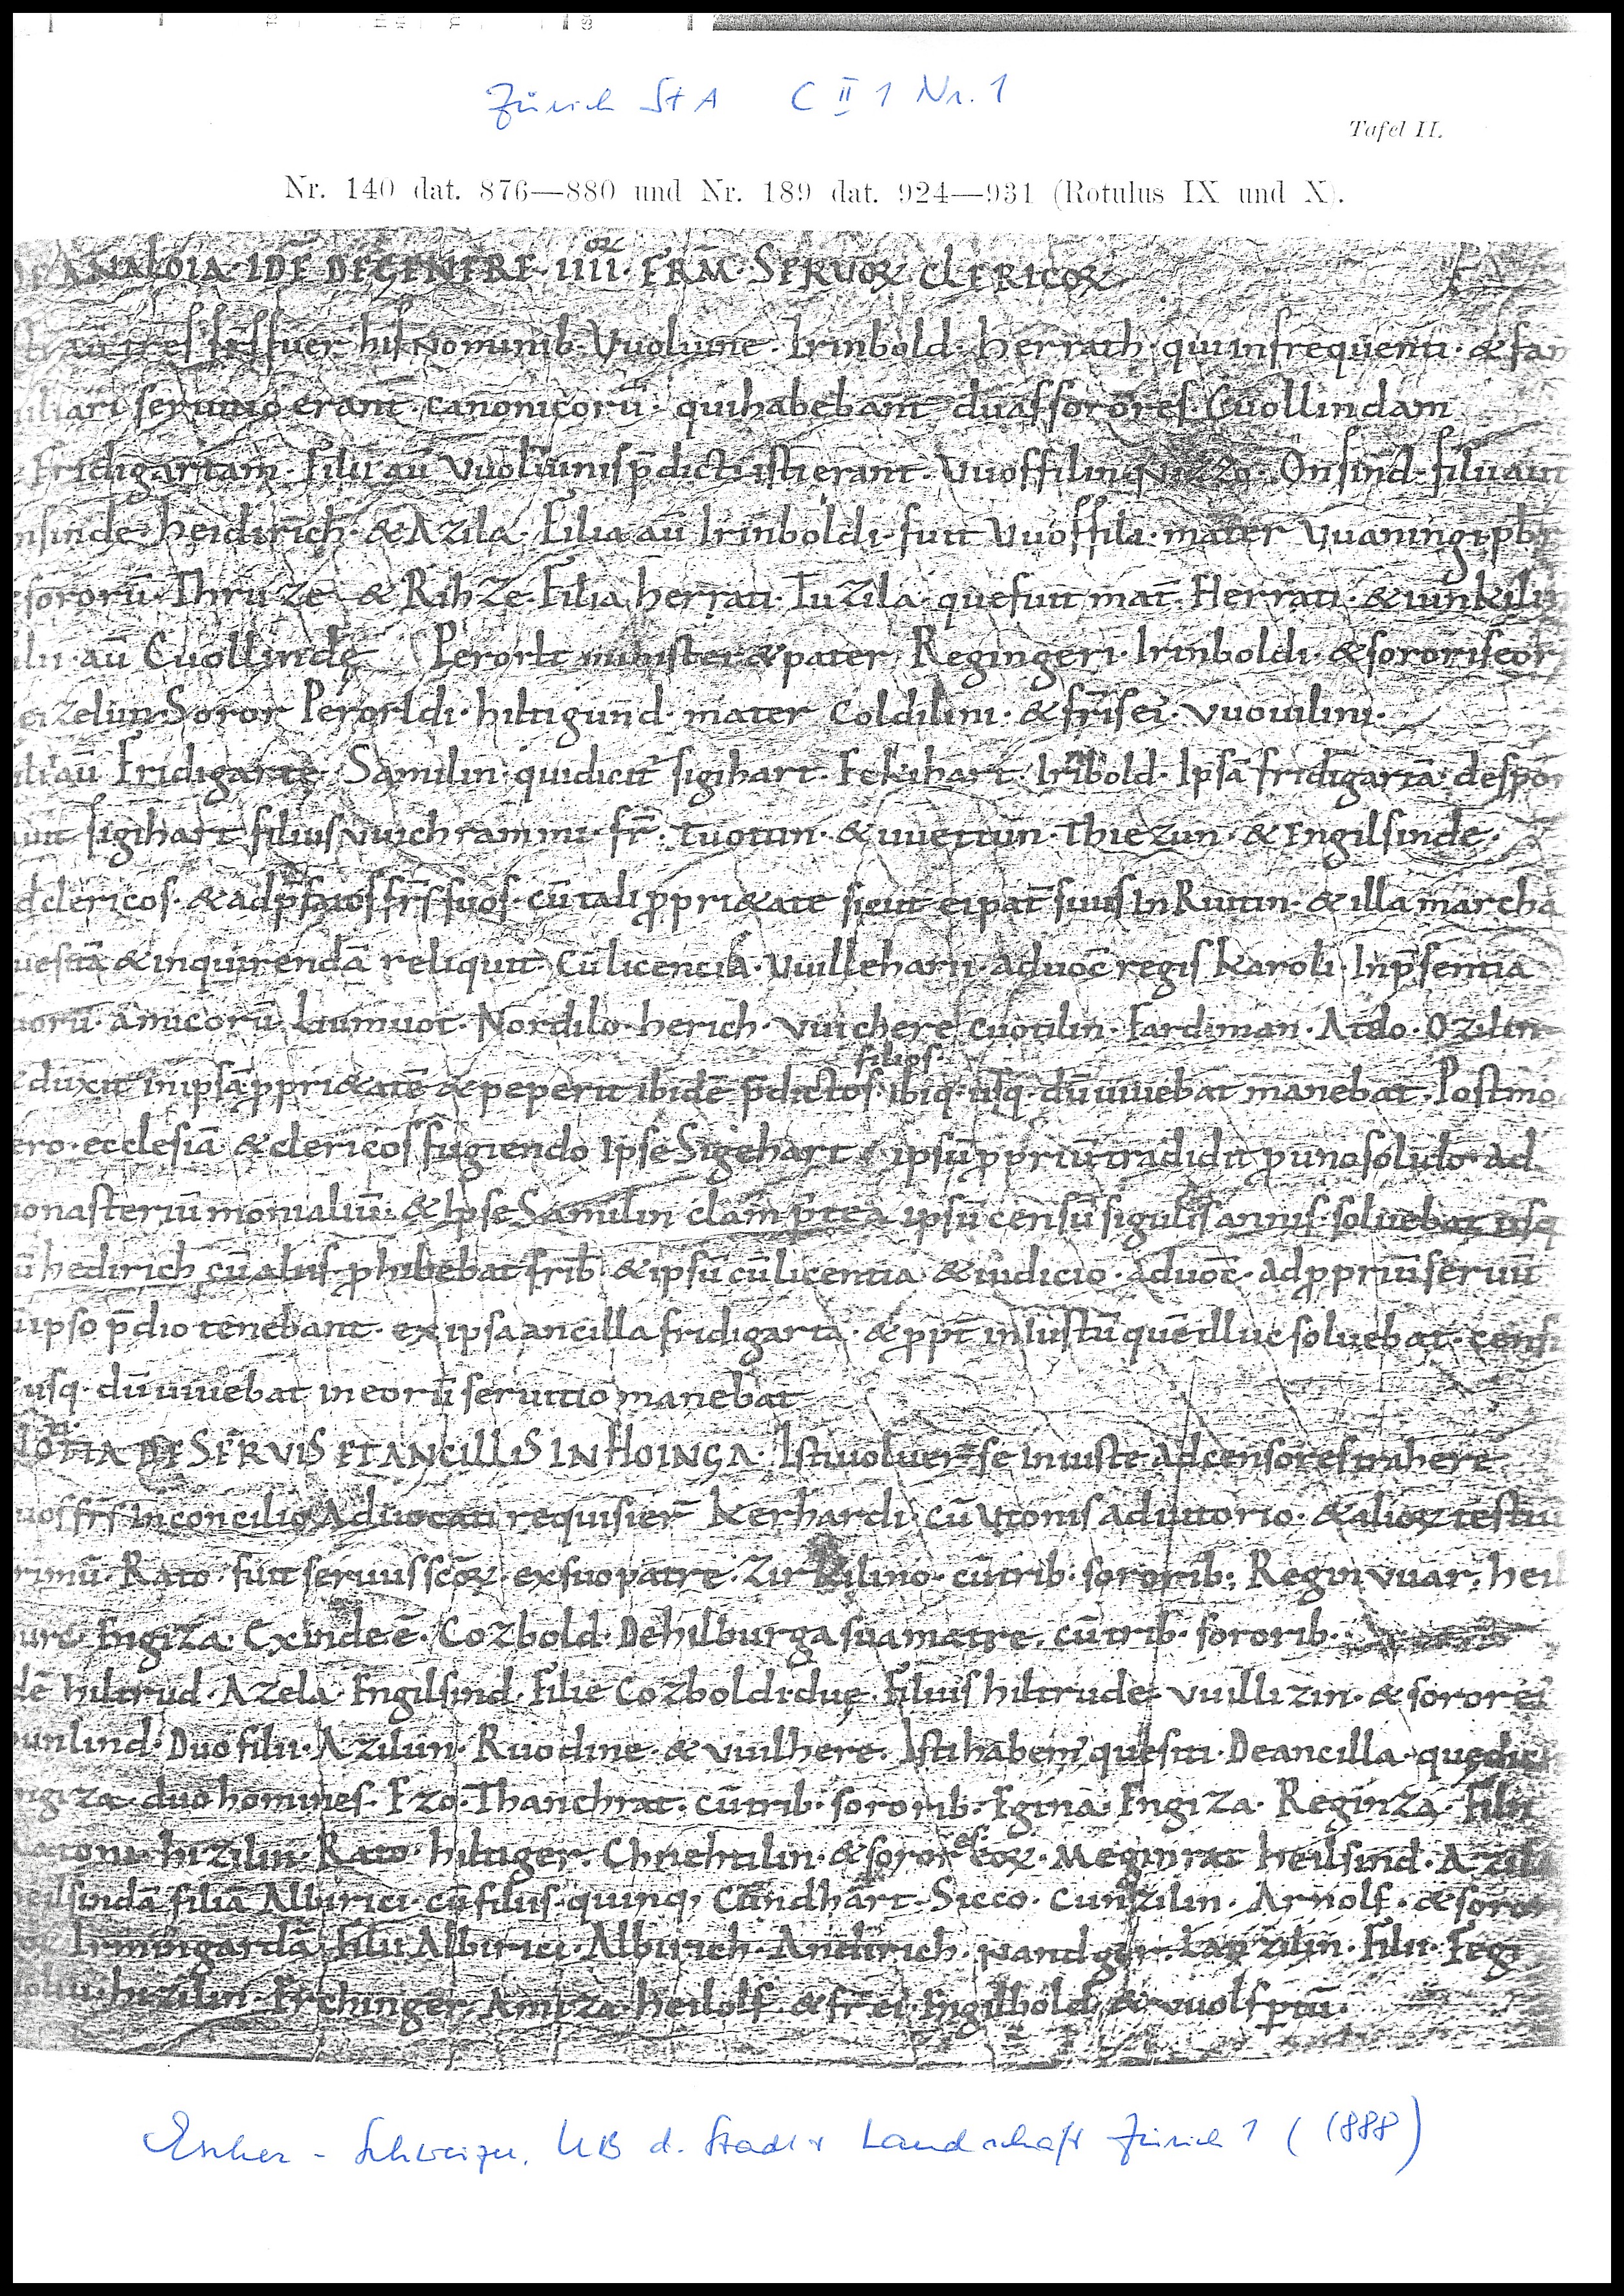 Zürich StA C II 1 Nr. 1
Tafel II.
Nr. 140 dat. 876—880 und Nr. 189 dat. 924—931 (Rotulus IX und X).
ANALOIA · IDĒ DE GENERE · IIII · FRM̄ · SERUOꝜ CLERICOꝜ
tres frs̄ fuer̄ his Nominib · Vuoluine · Irinbold · herrath · qui in frequenti · & fam
iliari seruitio erant · canonicorū · qui habebant duas sorores · Cuollindam
Fridigartam · Filii aū Vuoluinis p̄dicti isti erant · Vuoffilin · Nizzo · Onsind · filii aut
nsinde · heidirich · & Azila · Filia aū Irinboldi · fuit Vuoffila · mater Vuaningi pb̄r
sororū · Thruze · & Rihze · Filia herrati · Tuzila · que fuit mat̄ · Herrati · & iunkilin
ilii · aū Cuollindę Perorlt minister & pater Regingeri · Irinboldi · & sororis eor
eizelun Soror Perorldi · hiltigund · mater Coldilini · & fr̄is ei · Vuouilini ·
ilii aū Fridigartę · Samilin · qui dicit̄ sigihart · Fekihart · Iribold · Ipsā fridigartā · despon
uit sigihart filius Vuichrammi · fr̄ · Tuotun · & Vuettun · Thiezun · & Engilsinde ·
d clericos · & ad p̄fatos frs̄ suos · cū tali ꝓpri&ate sicut ei pat̄ suus In Rutin · & illa marcha
uestitā & inquirendā reliquit · Cū licencia · Vuilleharii · aduoc̄ regis karoli · In p̄sentia
uorū · amicorū Liumuot · Nordilo · herich · Vuichere Cuotilin Fardiman · Atdo · Ozilin
filios ·
duxit in ipsā ꝓpri&atē & peperit ibidē p̄dictos · ibiq · usq · dū uiuebat manebat · Postmo
ero · ecclesiā & clericos fugiendo Ipse Sigehart ipsū ꝓpriū tradidit p uno solido · ad
onasteriū monialiū · & Ipse Samilin clam p̄tea ipsū censū sigulis annis · soluebat usq
ū hedirich cū aliis · ꝓhibebat frib̄ & ipsū cū licentia & iudicio · aduoc̄ · ad ꝓpriū seruū
ipso p̄dio tenebant · ex ipsa ancilla fridigarta · & ꝓpt̄ iniustū quē illuc soluebat · censū
usq · dū uiuebat in eorū seruitio manebat
DE SERVIS ET ANCILLIS IN HOINGA · Isti uoluer̄ se iniuste ad censores trahere
uos frs̄ In concilio Aduocati requisier̄ kerhardi · cū Vtonis adiutorio · & alioꝝ testiū
rimū · Rato · fuit seruus sc̄oꝝ · ex suo patre · Zirkilino · cū trib · sororib : Reginuuar : heil
Engiza · Exinde ē · Cozbold · De hilburga sua matre · cū trib · sororib ·
dē hiltrud · Azela · Engilsind · Filie Cozboldi · duę Filius hiltrude · Vuillizin · & soror ei
unlind · Duo filii · Azilun · Ruodine · & Vuilhere · Isti habent̄ quesiti · De ancilla · quę dici
ngiza duo homines · Ezo · Thanchrat · cū trib · sororib · Egina · Engiza · Reginza · Filii
atoni · hizilin · Rato · hiltiger · Chnehtilin · & sorores eoꝝ · Meginrat heilsind · Azila
eilsindā filiā Albirici · cū filiis · quinq, Cundhart · Sicco · Cunzilin · Arnolf · & soror
Irmingardā · Filii Albirici · Albirich · Andirich · Nandger · Lanzilin · Filii · Fegi
hizilin · Erchinger · Amiza · heilolf & fr̄ ei · Engilbold · & Vuolfptū ·
Escher - Schweizer, UB d. Stadt + Landschaft Zürich 1 (1888)